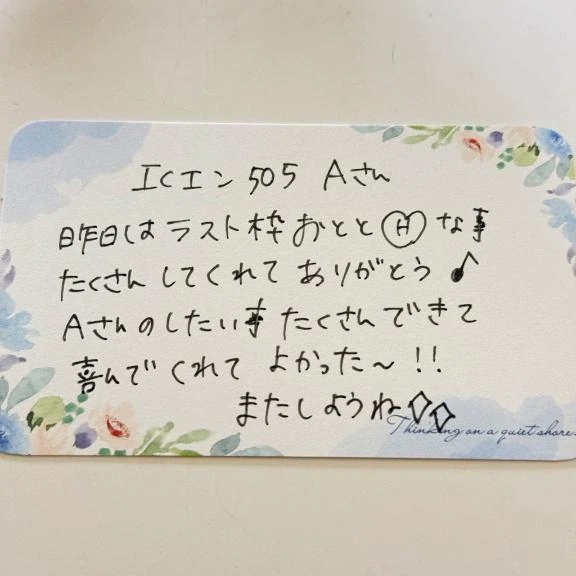 ICイン505 Aさん
昨日はラスト枠おとと(H)な事
たくさんしてくれてありがとう♪
Aさんのしたい事たくさんできて
喜んでくれてよかった〜!!
またしようね
Thinking on a quiet shore.